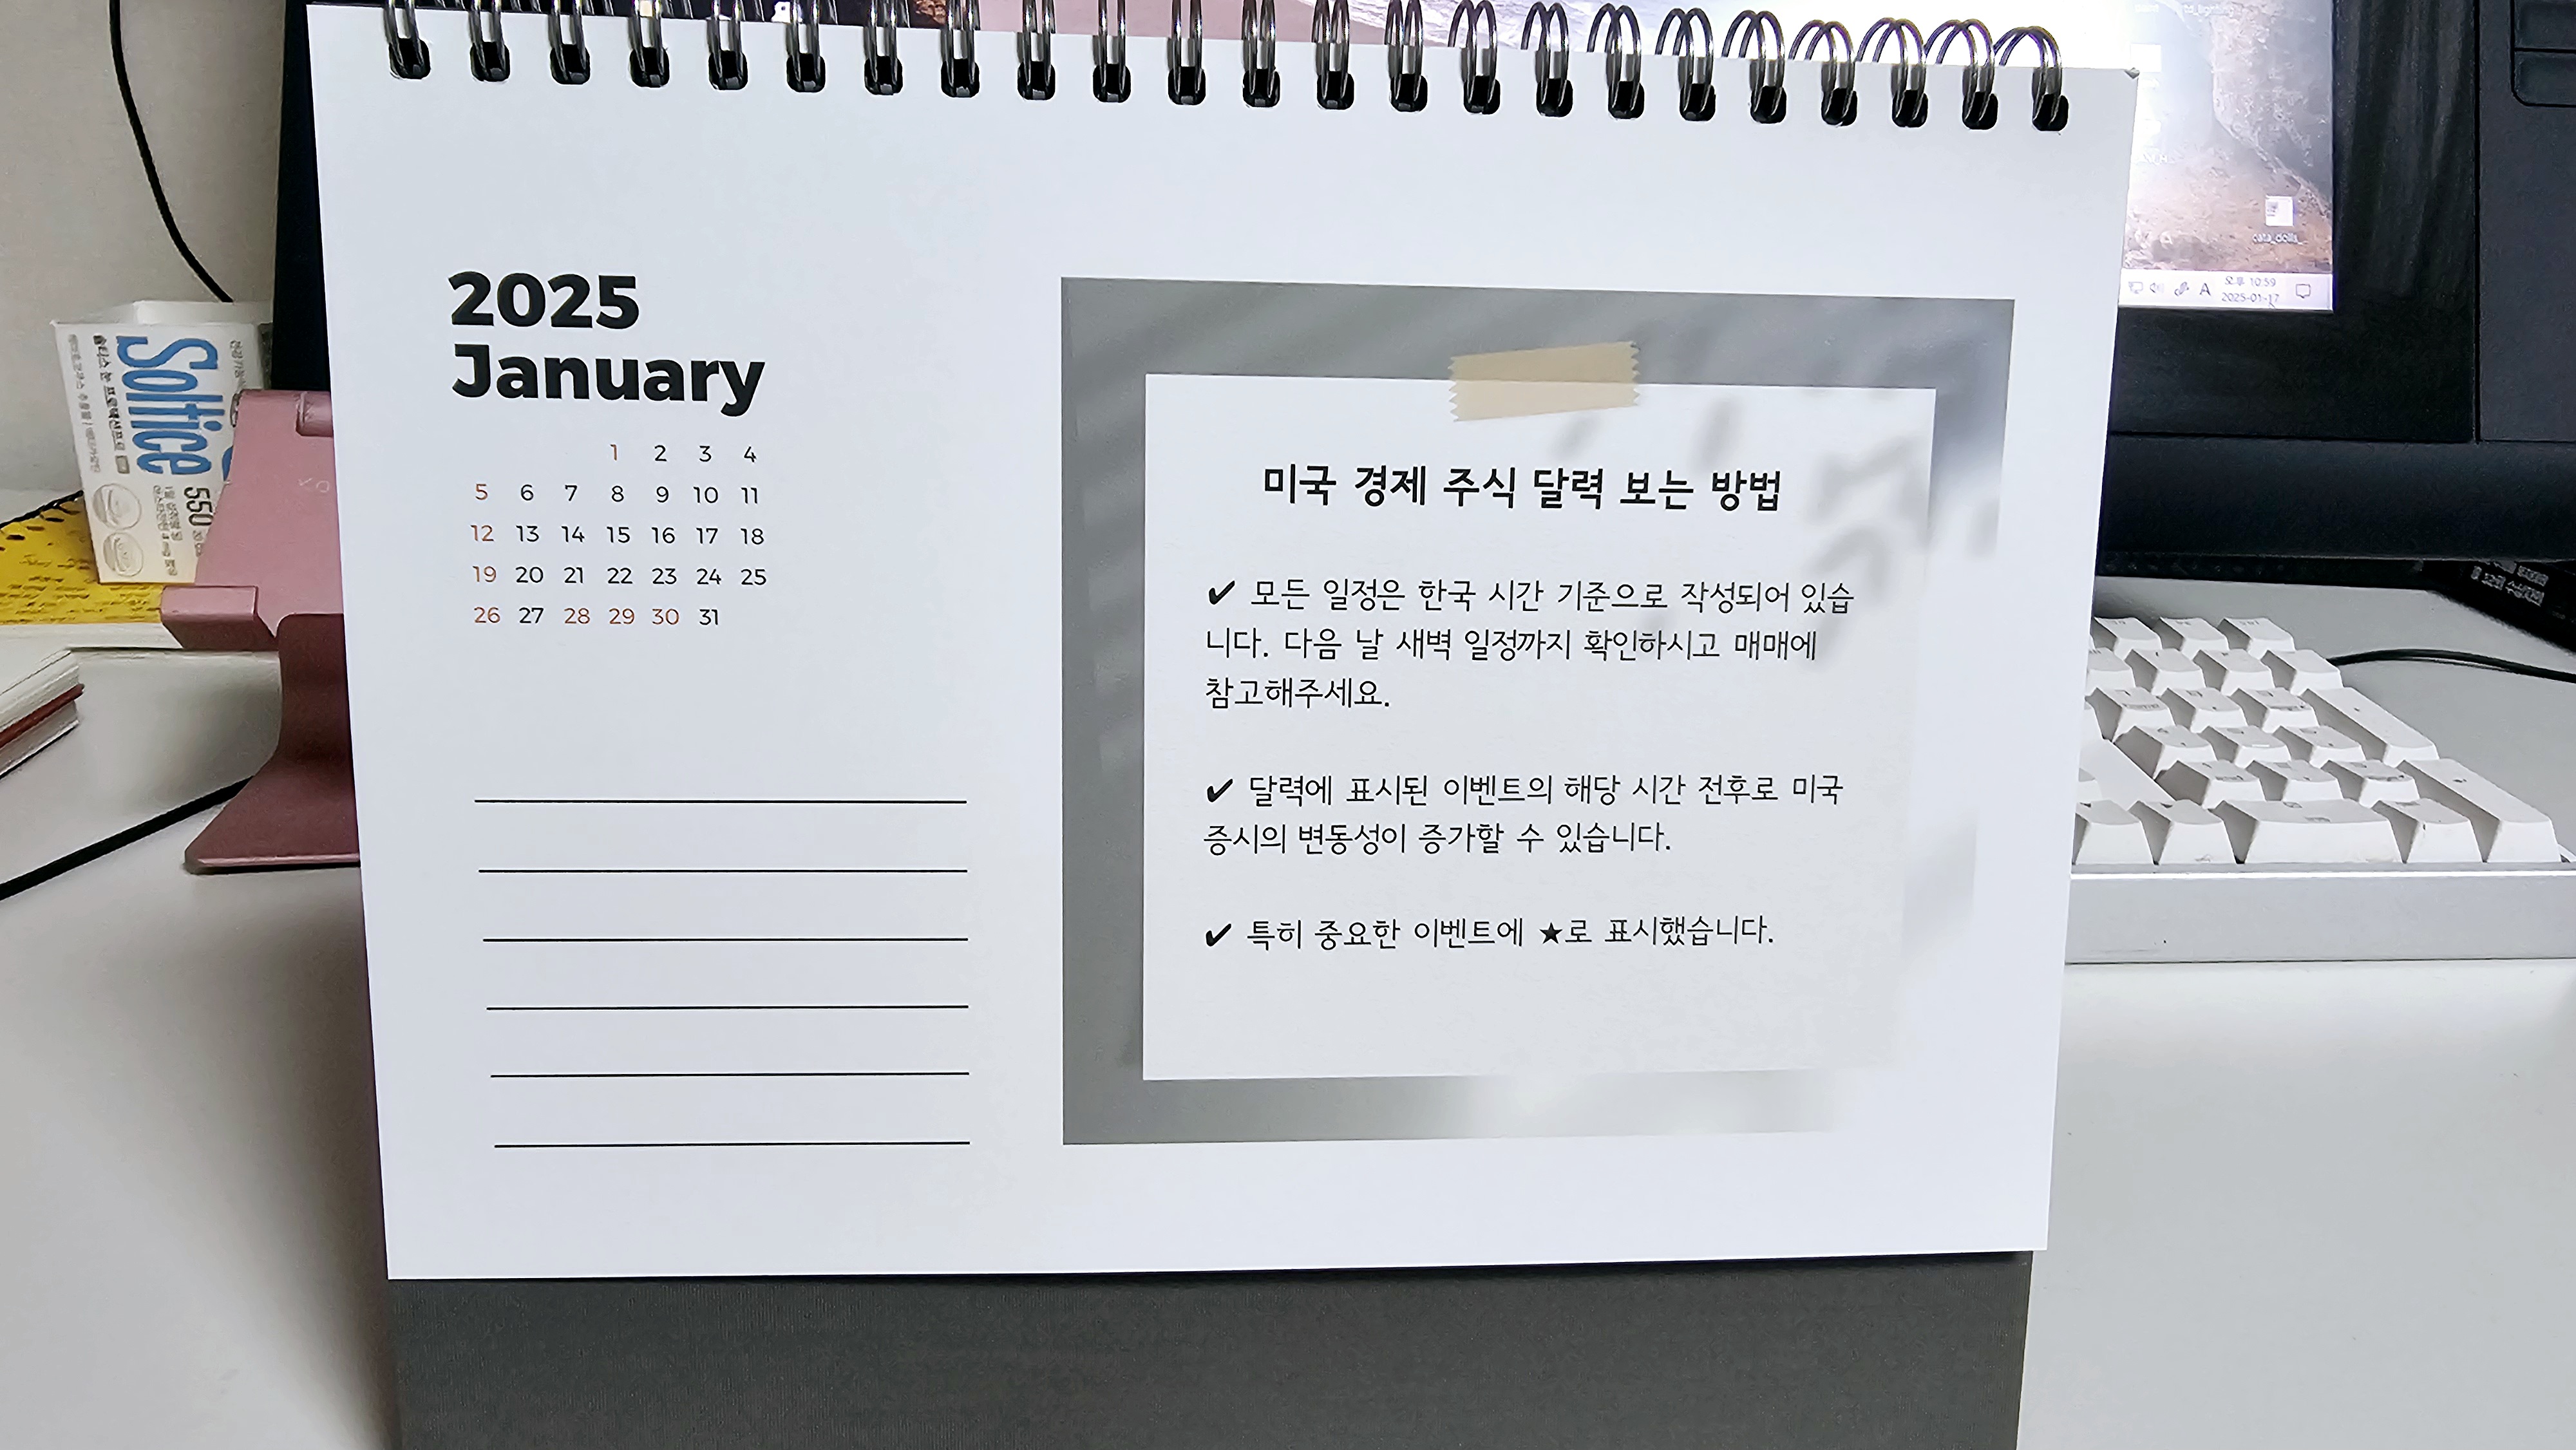 2025
January
1 2 3 4
5 6 7 8 9 10 11
12 13 14 15 16 17 18
19 20 21 22 23 24 25
26 27 28 29 30 31
미국 경제 주식 달력 보는 방법
✔ 모든 일정은 한국 시간 기준으로 작성되어 있습
니다. 다음 날 새벽 일정까지 확인하시고 매매에
참고해주세요.
✔ 달력에 표시된 이벤트의 해당 시간 전후로 미국
증시의 변동성이 증가할 수 있습니다.
✔ 특히 중요한 이벤트에 ★로 표시했습니다.
Soltice
550
A
오후 10:59
2025-01-17